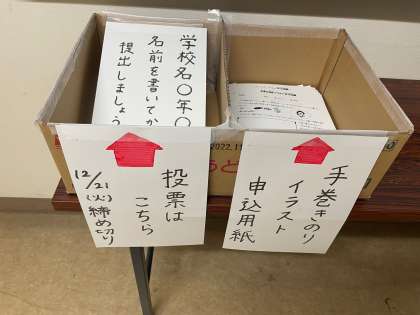 学校名〇年〇
名前を書いてか
提出しましょう
投票は
こちら
12/21(火)締め切り
手巻きのり
イラスト
申込用紙
2022.11
うど